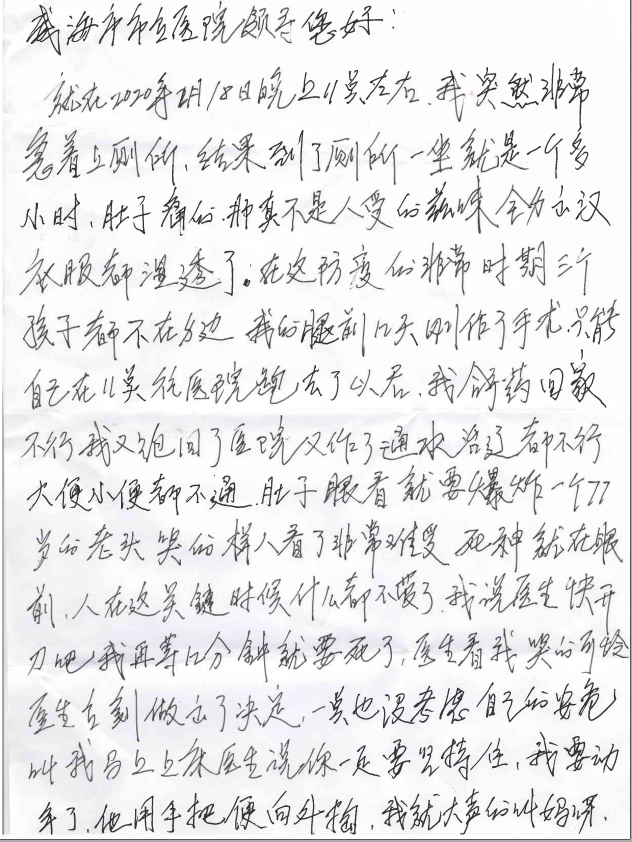 威海市市立医院领导您好：
就在2020年2月18日晚上11点左右，我突然非常
急着上厕所，结果到了厕所一坐就是一个多
小时，肚子痛的那真不是人受的滋味全身出汉
衣服都湿透了。在这防疫的非常时期三个
孩子都不在身边 我的腿前几天刚作了手术只能
自己在11点往医院跑去了以后，我拿药回家
不行我又跑回了医院又作了通水治辽都不行
大便小便都不通，肚子眼看就要爆炸一个77
岁的老头哭的样人看了非常难受 死神就在眼
前，人在这关键时候什么都不要了，我说医生快开
刀吧我再等几分钟就要死了，医生看我哭的可怜
医生立刻做出了决定，一点也没考虑自己的安危
叫我马上上床医生说你一定要坚持住，我要动
手了，他用手把便向外掏，我就大声的叫妈呀，